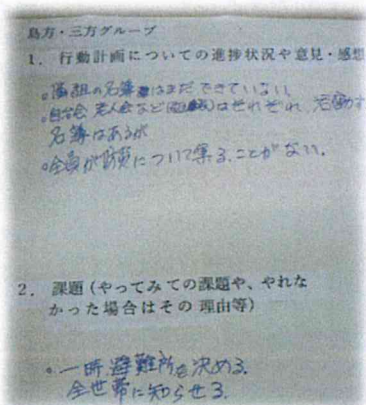 島方・三方グループ
1. 行動計画についての進捗状況や意見・感想
。隣組の名簿はまだできていない
。自治会 老人会など はそれぞれ、活動す
名簿はあるが
。全員が防災について集ることがない.
2. 課題（やってみての課題や、やれな
かった場合はその理由等）
。一時避難所を決める.
全世帯に知らせる.